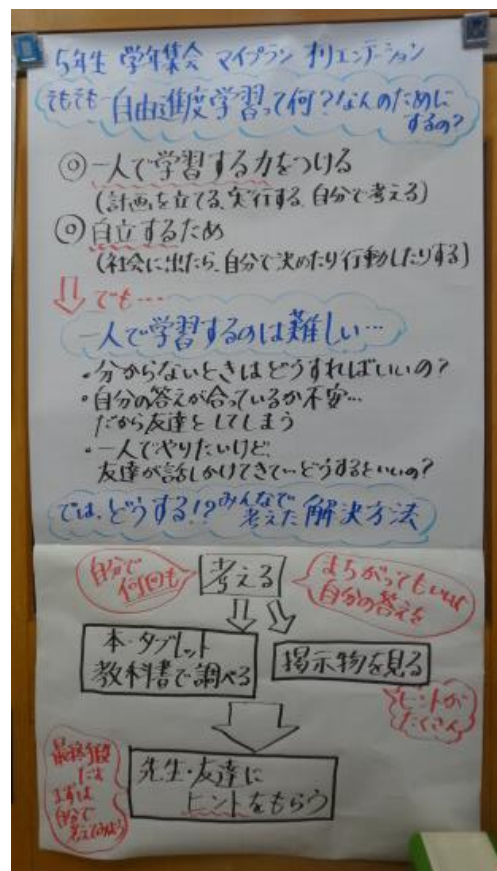 5年生 学年集会 マイプラン オリエンテーション
そもそも 自由進度学習って何?なんのために
するの?
◎一人で学習する力をつける
(計画を立てる、実行する、自分で考える)
◎自立するため
(社会に出たら、自分で決めたり行動したりする)
でも…
一人で学習するのは難しい…
・分からないときはどうすればいいの?
・自分の答えが合っているか不安…
だから友達としてしまう
・一人でやりたいけど、
友達が話しかけてきて…どうするといいの?
では、どうする!?みんなで
考えた 解決方法
自分で
何回も
考える
まちがってもいい
自分の答えを
本・タブレット
教科書で調べる
掲示物を見る
ヒントが
たくさん
先生・友達に
ヒントをもらう
最終手段
だよ
まずは
自分で
考えてみよう